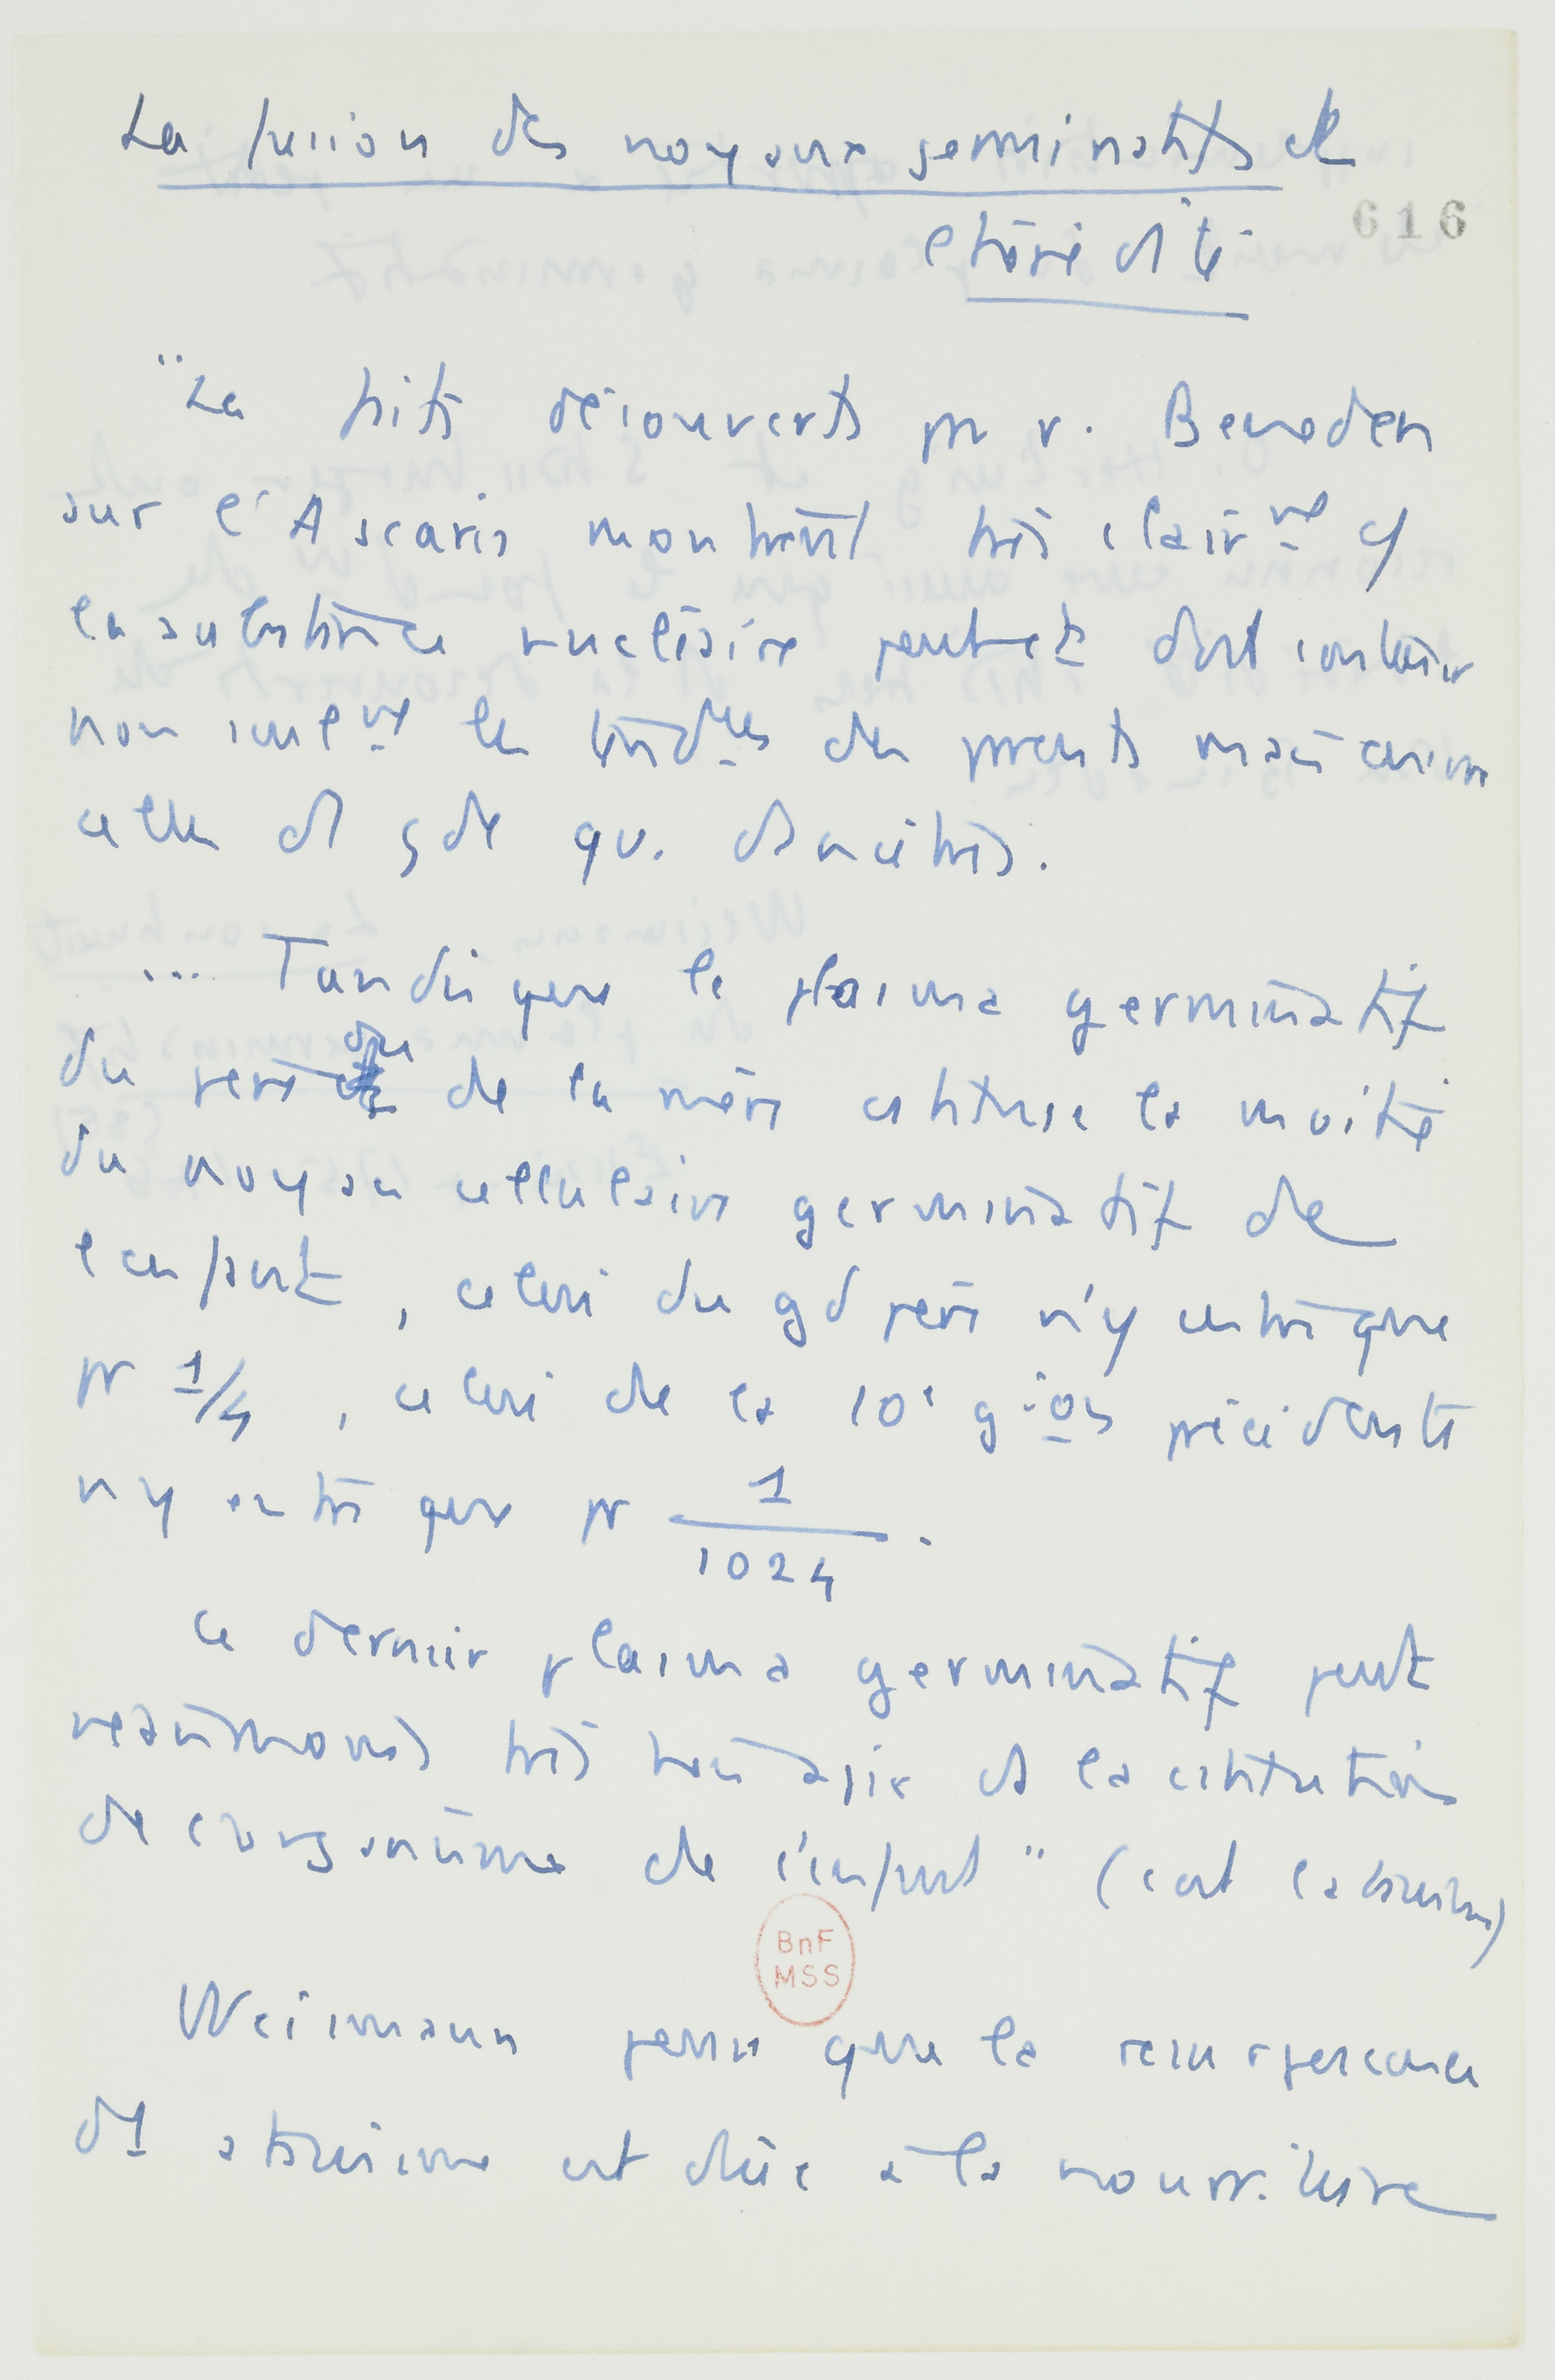 La fusion des noyaux germinatifs et
l'hérédité
616
"Les faits découverts par v. Beneden
sur l'Ascaris montrent très clairmt q
la substance nucléaire peut être doit contenir
non seulmt les tendces des parents mais encore
celles d gde qu. d'ancêtres.
... Tandis que le plasma germinatif
du père ou de la mère cstitue la moitié
du noyau cellulaire germinatif de
l'enfant, celui du gd père n'y entre que
pr 1/4, celui de la 10e g.ion précédente
n'y entre que pr 1/1024.
Ce dernier plasma germinatif peut
néanmoins très bien agir ds la cstitution
de l'organisme de l'enfant" (c'est l'atavisme)
BnF
MSS
Weismann pense que la resurgescence
d1 atavisme est due à la nourriture